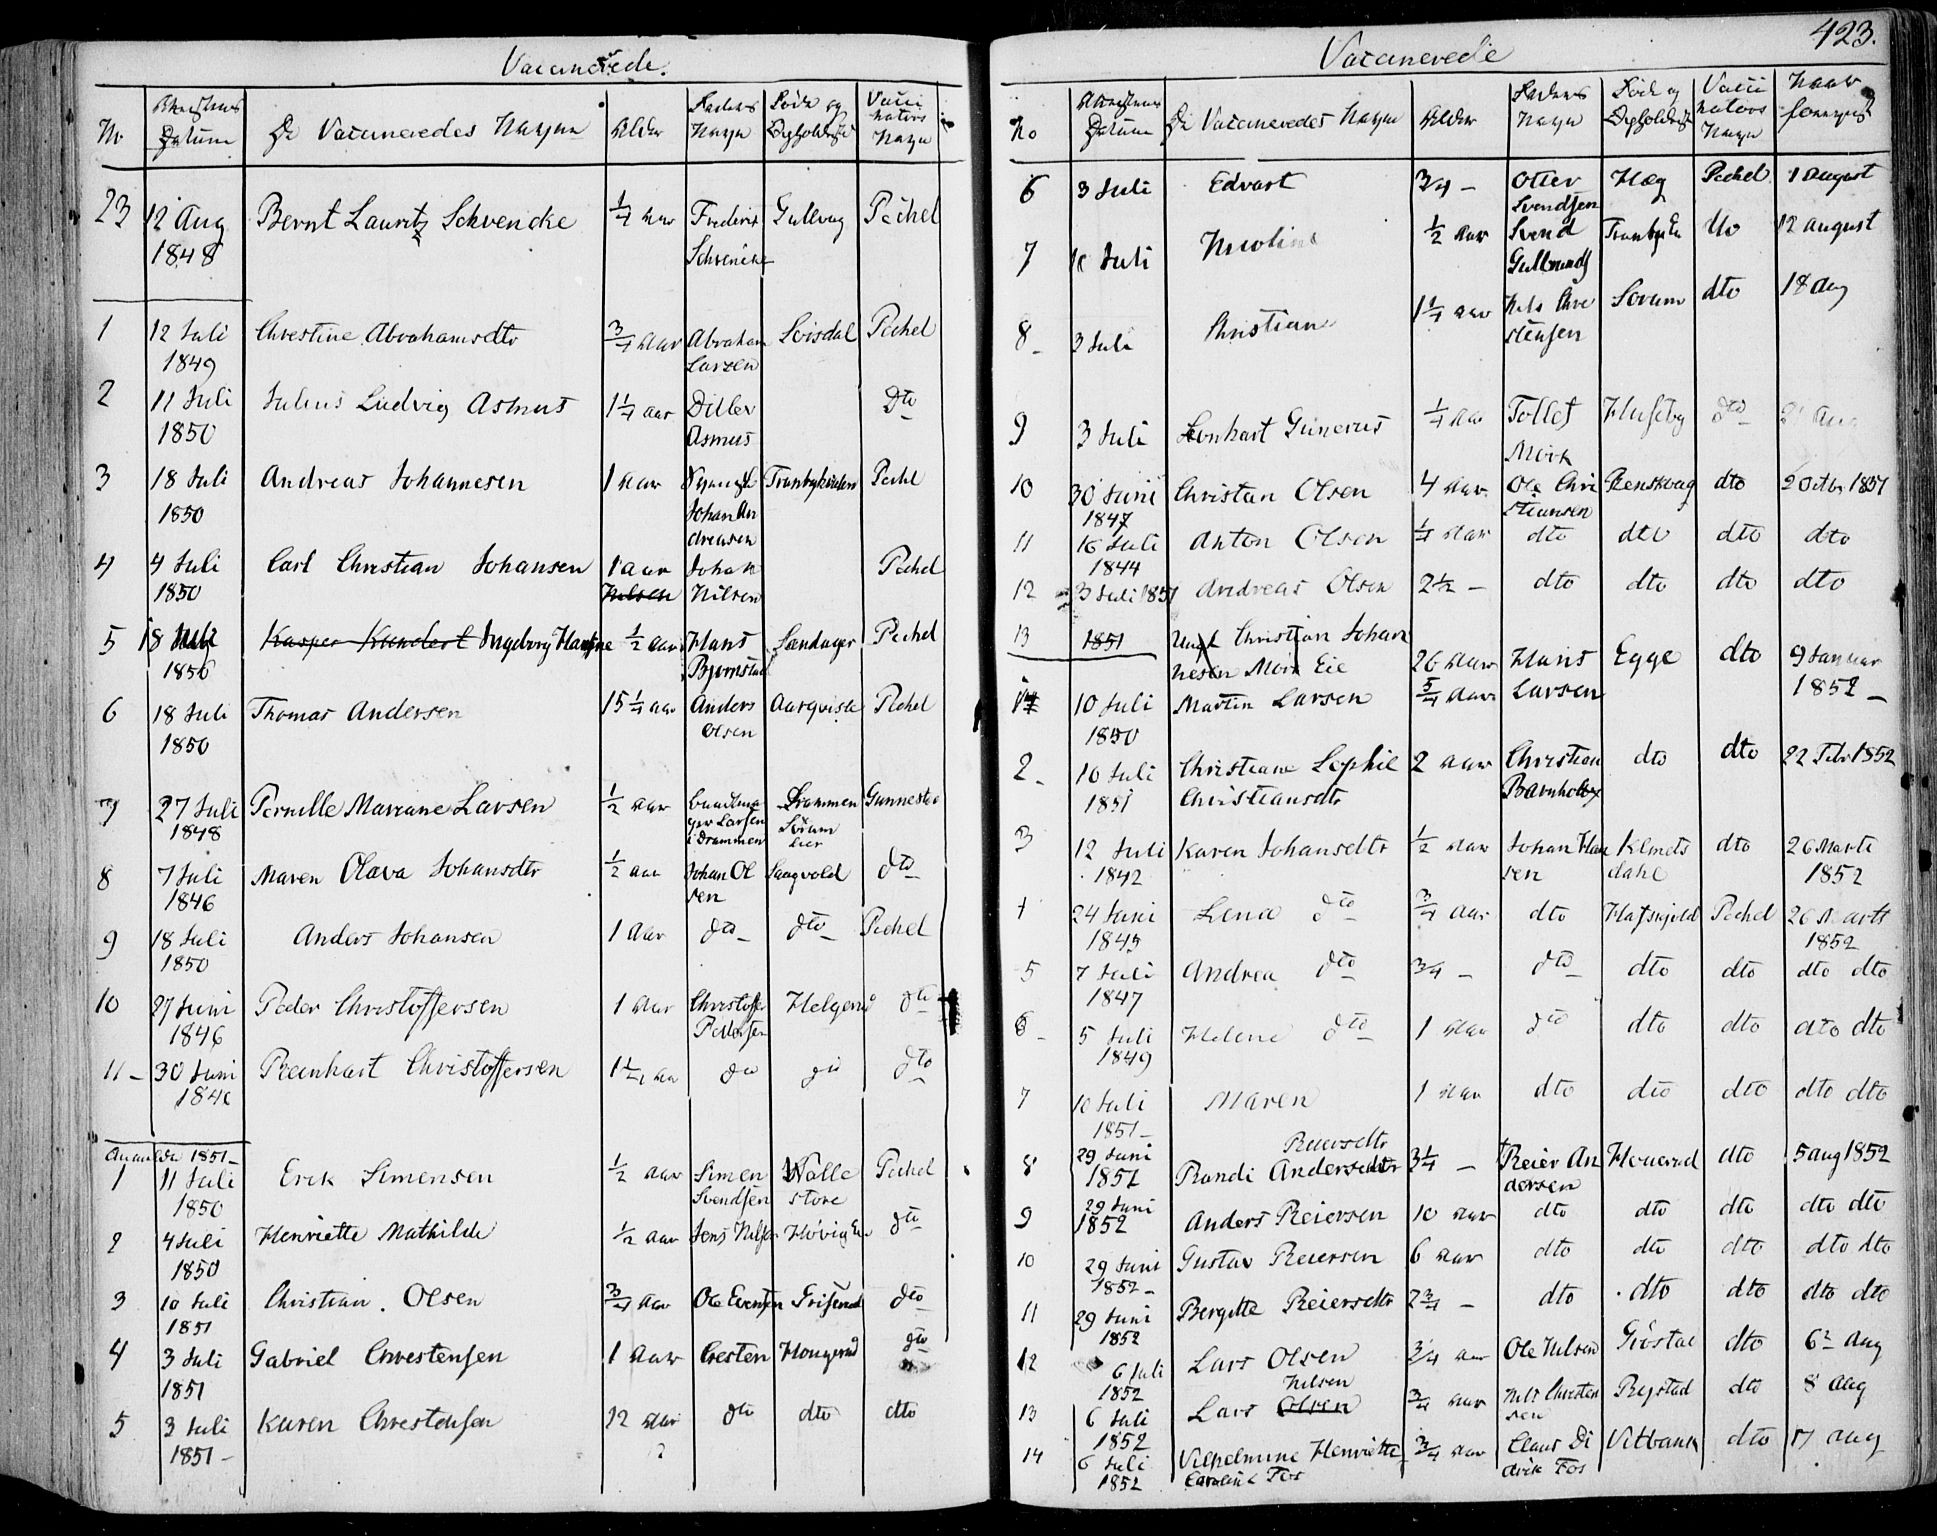 Vaccinerede.
No
Attestens Datum
De Vaccineredes Navne
Alder
Faders Navn
Føde og Opholdssted
Vaccinators Navn
23 12 Aug Bernt Lauritz Schvencke 1/4 Aar Frederik Gullaug Pechel
1848 Schvencke
1 12 Juli Christine Abrahamsdtr 3/4 Aar Abraham Pechel
1849 Larsen
2 11 Juli Julius Ludvig Asmus 1 1/4 Aar Ditlev Dto
1850 Asmus
3 18 Juli Andreas Johannesen 1 Aar Pechel
1850 Johan An
dreasen
4 4 Juli Carl Christian Johansen 1 aar Johan Pechel
1850 Nilsen Nilsen
5 18 Juli Kasper Kundert Ingeborg Hansine 1/2 aar Hans Sandager Pechel
1850 Bjørnstad
6 18 Juli Thomas Andersen 15 1/4 aar Anders Aarqvisle Pechel
1850 Olsen
7 27 Juli Pernille Mariane Larsen 1/2 aar Drammen Gunnestad
1848 ger Larsen
i Drammen
8 7 Juli Maren Olava Johansdtr 1/2 aar Johan Ol Saagvold dto
1846 sen
9 18 Juli Anders Johansen 1 Aar dto dto Pechel
1850
10 27 Juni Peder Christoffersen 1 Aar Christoffer Helgerud dto
1846 Pedersen
11 30 Juni Reinhart Christoffersen 1 1/4 Aar dto dto dto
184
Anmeldte 1851
1 11 Juli Erik Simensen 1/2 Aar Simen Walle Pechel
1850 Svendsen store
2 4 Juli Henriette Mathilde 1/2 Aar Jens Nilsen Høvig Eie dto
1850
3 10 Juli Christian Olsen 3/4 Aar Ole Evensen Griserud dto
1851
4 3 Juli Gabriel Christensen 1 Aar Cresten Hougerud dto
1851
5 3 Juli Karen Christensen 12 Aar dto dto dto
1851 ?
423.
Vaccinerede
No
Attestens Datum
De Vaccineredes Navne
Alder
Faders Navn
Føde og Opholdssted
Vaccinators Navn
Naar forevist
6 3 Juli Edvart 3/4 Otter Høeg Pechel 1 August
Svendsen
7 10 Juli Nicoline 1/2 Aar Svend Tranby Eie dto 12 August
Gulbrands
8 3 Juli Christian 1 1/4 Aar Nils Chri Sørum dto 18 Aug
stensen
9 3 Juli Lenhart Gunerius 1/4 Aar Tollef Huseby dto Aug
Mørk
10 30 Juni Christian Olsen 4 Aar Ole Chri Renskoug dto 2 Octbr 1851
1847 stiansen
11 16 Juli Anton Olsen 1/4 Aar dto dto dto dto
1844
12 3 Juli 1851 Andreas Olsen 2 1/2 dto dto dto dto
13 1851 Ungk Christian Johan
nesen Mørk Eie 26 Aar Hans Egge dto 9 Januar
1 10 Juli Martin Larsen 5/4 Aar Larsen 1852
1850
2 10 Juli Christiane Sophie 2 Aar Christian dto dto 22 Febr 1852
1851 Christiansdtr Barnholdt
3 12 Juli Karen Johansdtr 1/2 Aar Johan Han Klemets dto 26 Marts
1842 sen dahl 1852
4 24 Juni Lena dto 3/4 Aar dto Hafskjold Pechel 26 Marts
1845 1852
5 7 Juli Andrea dto 3/4 dto dto dto dto dto
1847
6 5 Juli Helene dto 1 Aar dto dto dto dto dto
1849
7 10 Juli Maren 1 Aar dto dto dto dto dto
1851
Reiersdtr
8 29 Juni Randi Andersdtr 3 1/4 Reier An Houerud dto 5 Aug 1852
1852 dersen
9 29 Juni Anders Reiersen 10 Aar dto dto dto dto dto
1852
10 29 Juni Gustav Reiersen 6 Aar dto dto dto dto dto
1852
11 29 Juni Bergitte Reiersdtr 2 3/4 dto dto dto dto dto
1852
12 6 Juli Lars Olsen 3/4 Aar Ole Nilsen Grøstad dto 6 Aug
1852
Nilsen
13 6 Juli Lars Olsen 3/4 Aar Nils Christen Rystad dto 8 Aug
1852 sen
14 6 Juli Vilhelmine Henriette 3/4 Aar Claus Di Vitbank dto 17 Aug
1852 Caroline Fos drik Fos